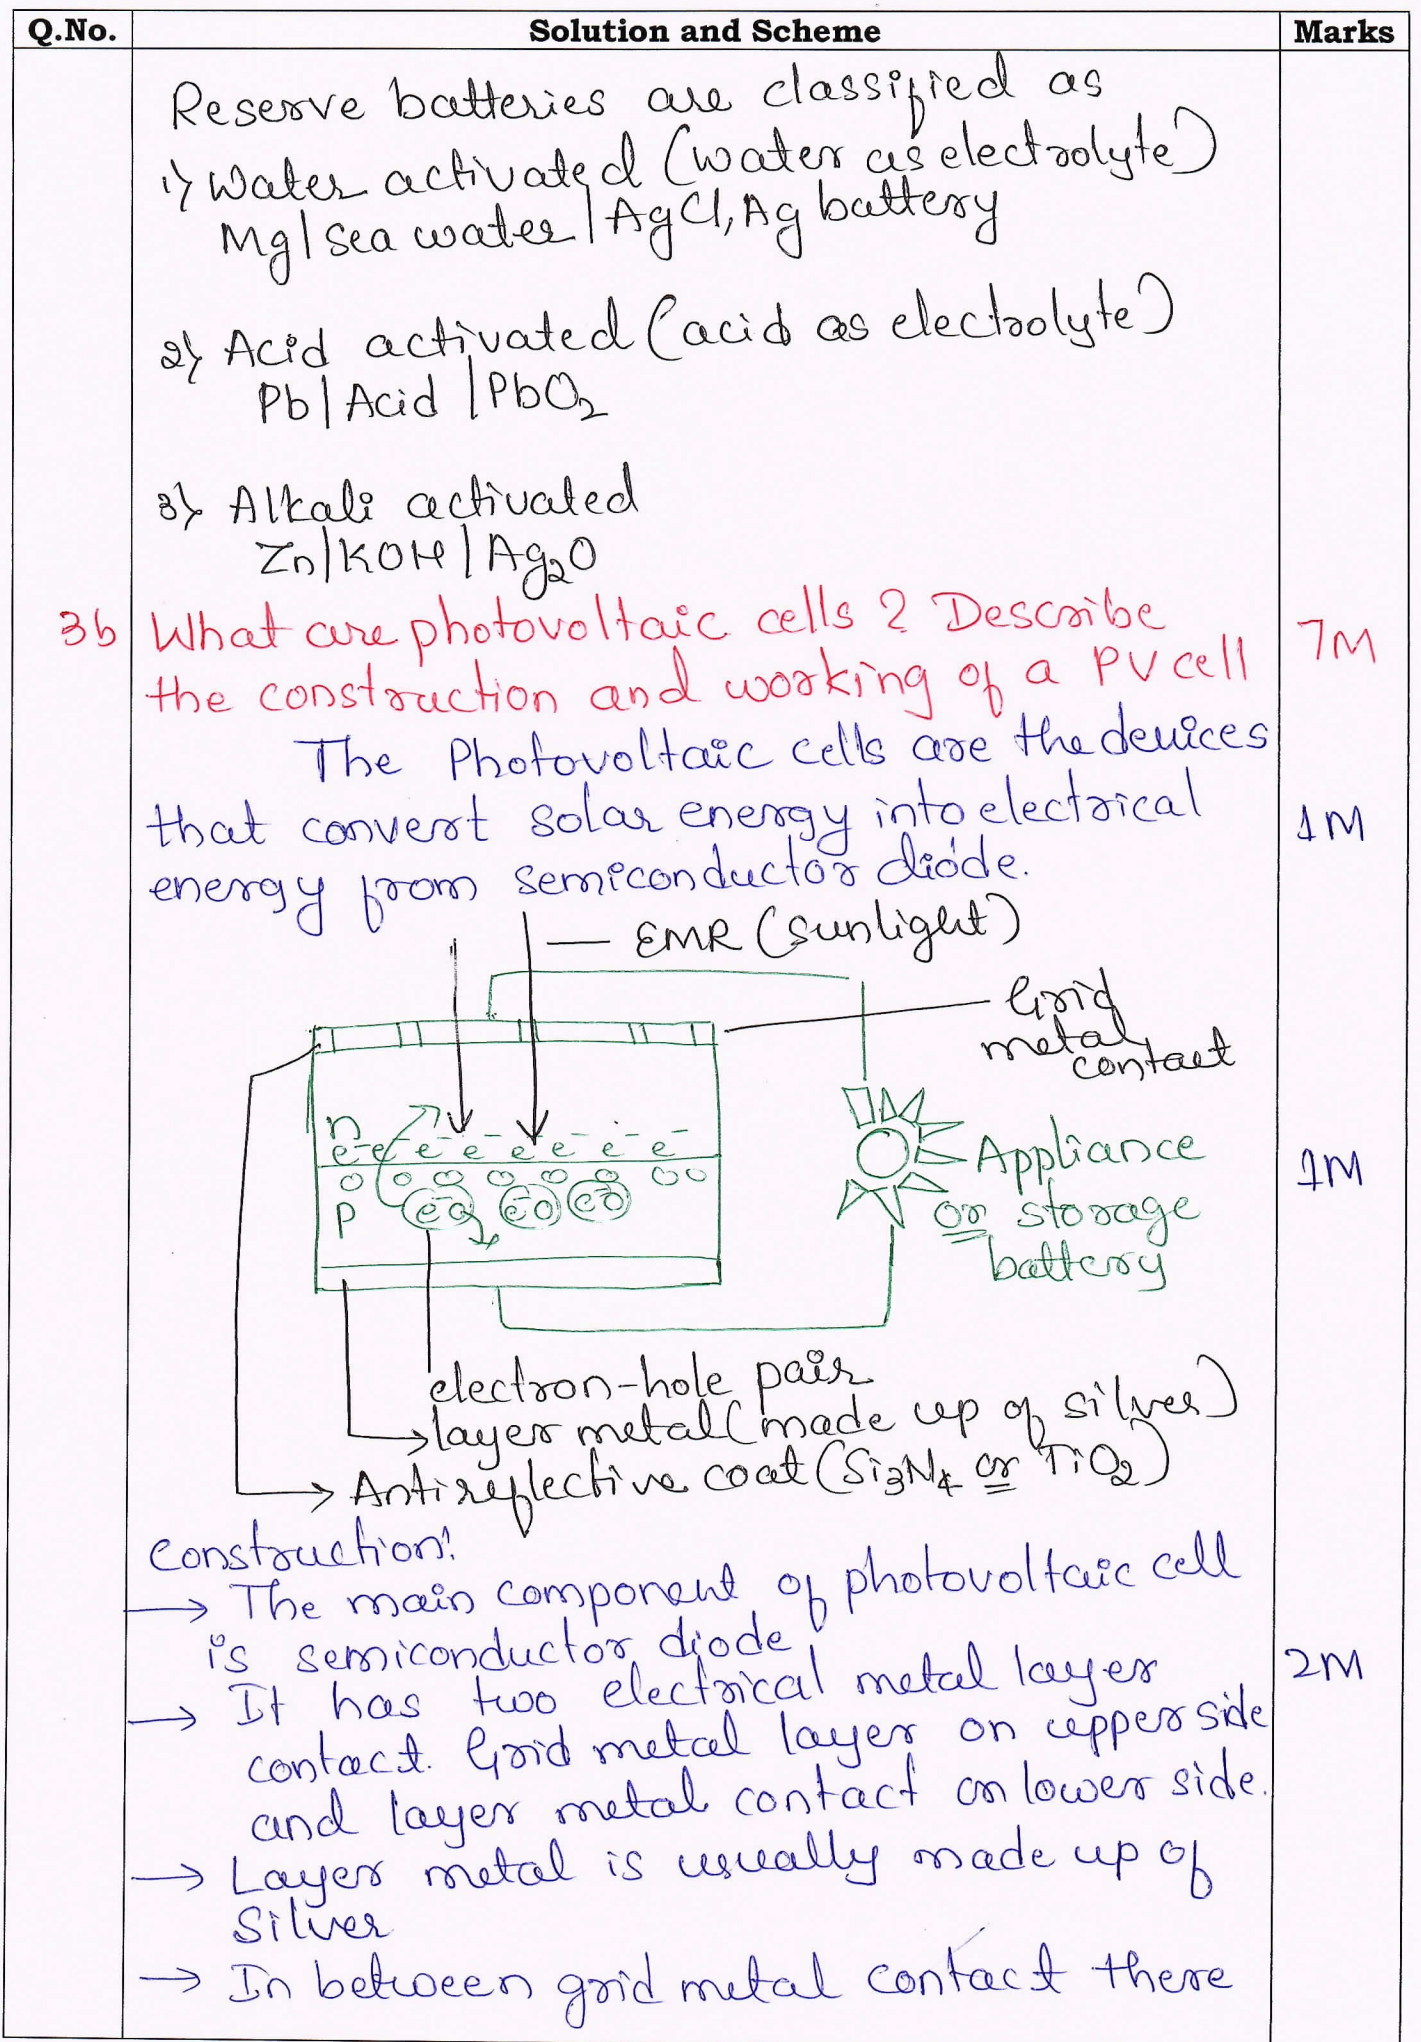 Q.No. Solution and Scheme Marks
Reserve batteries are classified as
1) Water activated (water as electrolyte)
Mg|Sea water|AgCl,Ag battery
2) Acid activated (acid as electrolyte)
Pb|Acid|PbO2
3) Alkali activated
Zn|KOH|Ag2O
3b What are photovoltaic cells? Describe 7M
the construction and working of a PV cell
The Photovoltaic cells are the devices
that convert solar energy into electrical 1M
energy from semiconductor diode.
— EMR (sunlight)
Grid
metal
contact
n
e- e- e- e- e- e- e- e-
p
eo eo eo
Appliance 1M
or storage
battery
electron-hole pair
layer metal (made up of silver)
Antireflective coat (Si3N4 or TiO2)
Construction:
→ The main component of photovoltaic cell
is semiconductor diode 2M
→ It has two electrical metal layer
contact. Grid metal layer on upper side
and layer metal contact on lower side.
→ Layer metal is usually made up of
Silver
→ In between grid metal contact there